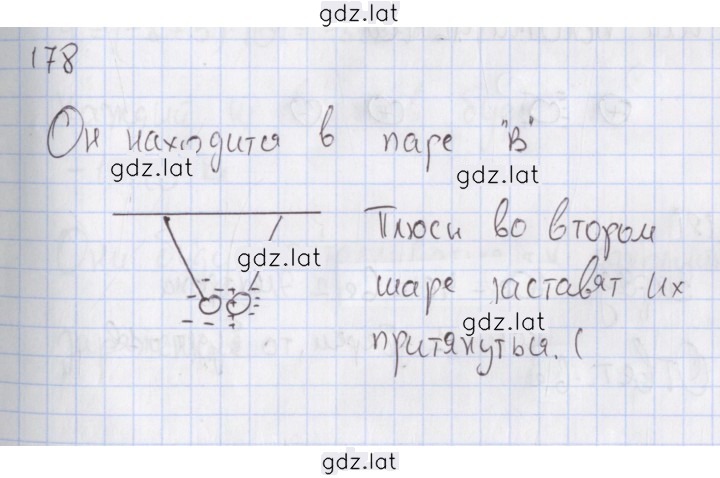 gdz.lat
178
Он находится в паре "В"
gdz.lat
gdz.lat
Плюсы во втором
gdz.lat
шаре заставят их
gdz.lat
притянуться. (
gdz.lat